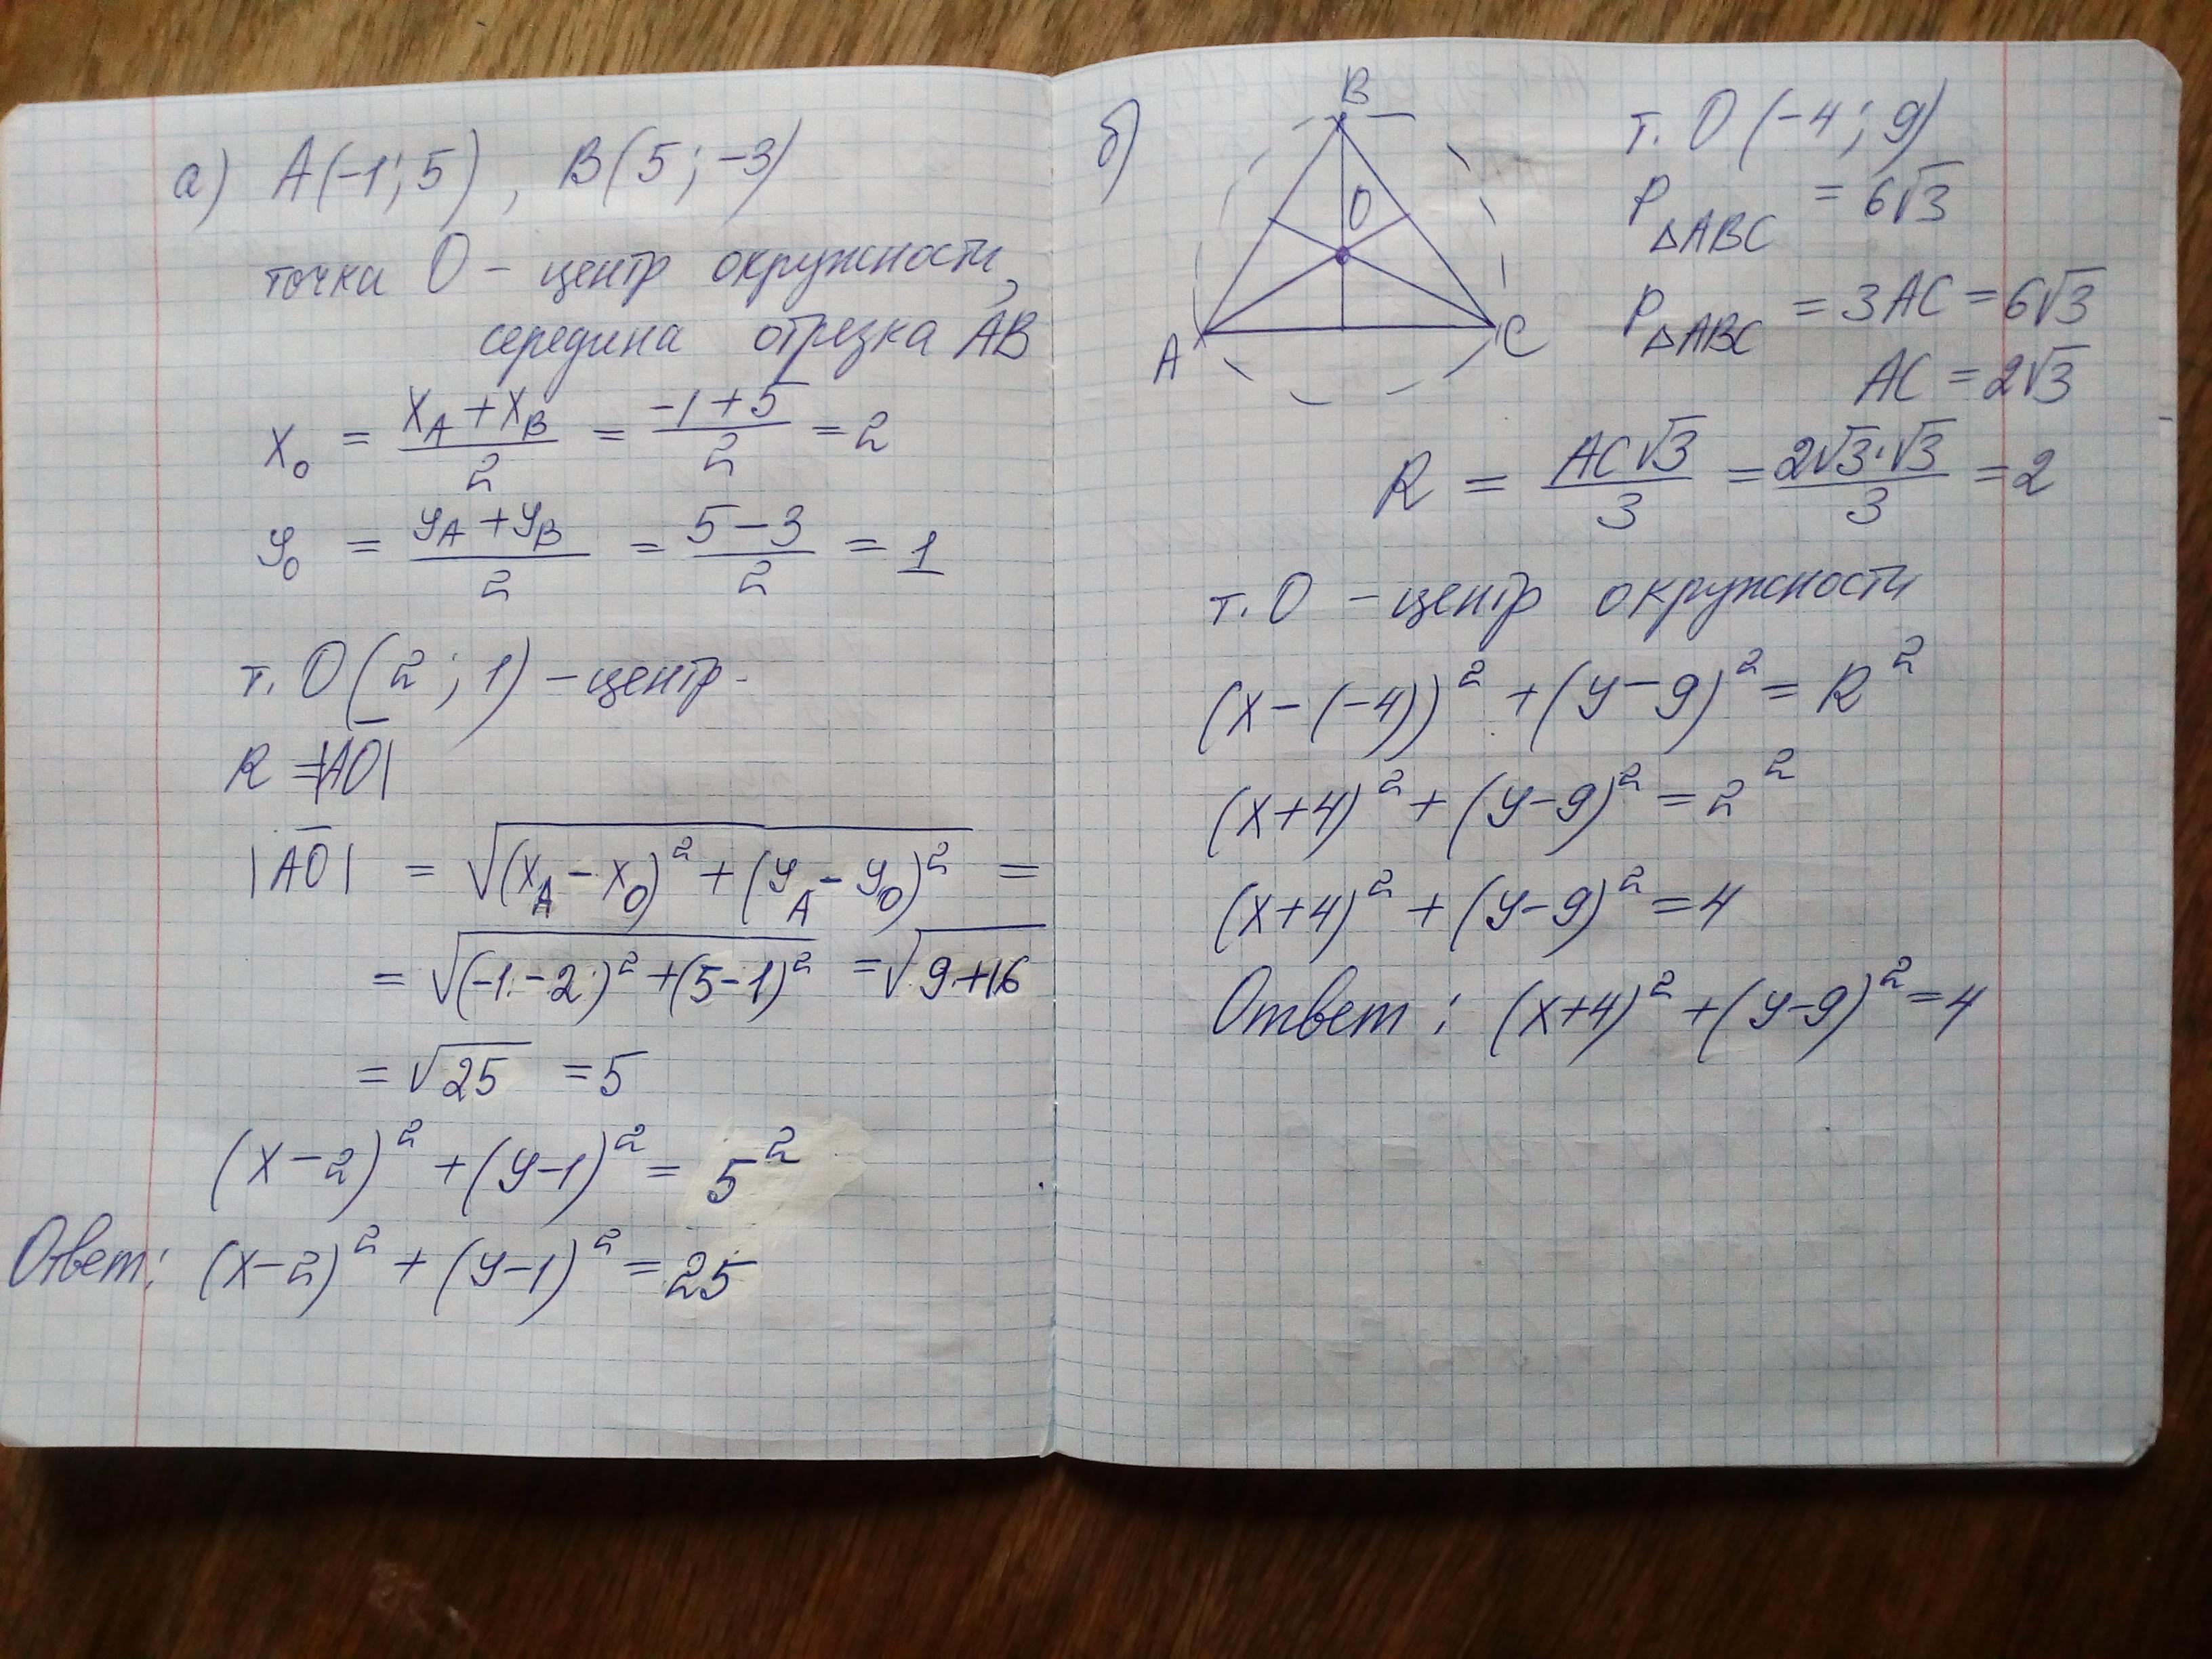 а) A(-1; 5), B(5; -3)
точка O - центр окружности,
середина отрезка AB
x₀ = (x_A + x_B)/2 = (-1+5)/2 = 2
y₀ = (y_A + y_B)/2 = (5-3)/2 = 1
т. O(2; 1) - центр.
R = |AO|
|AO| = √((x_A - x_O)² + (y_A - y_O)²) =
= √((-1-2)² + (5-1)²) = √(9+16)
= √25 = 5
(x-2)² + (y-1)² = 5²
Ответ: (x-2)² + (y-1)² = 25
б)
B
O
A
C
т. O(-4; 9)
P△ABC = 6√3
P△ABC = 3AC = 6√3
AC = 2√3
R = AC√3/3 = 2√3·√3/3 = 2
т. O - центр окружности
(x-(-4))² + (y-9)² = R²
(x+4)² + (y-9)² = 2²
(x+4)² + (y-9)² = 4
Ответ: (x+4)² + (y-9)² = 4